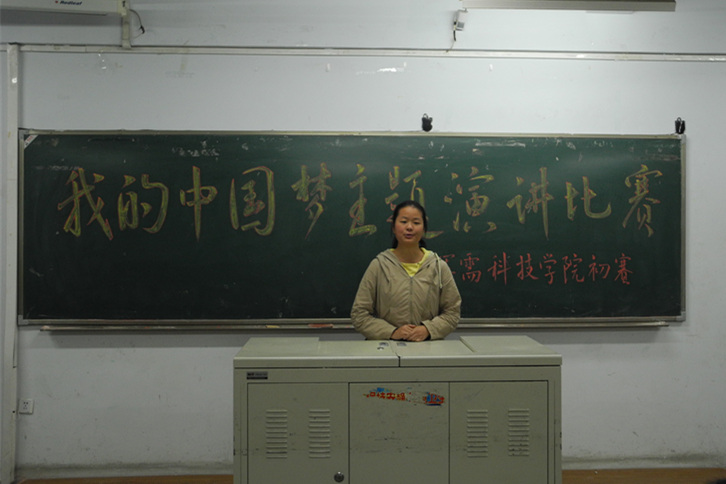 我的中国梦主题演讲比赛
需科技学院初赛